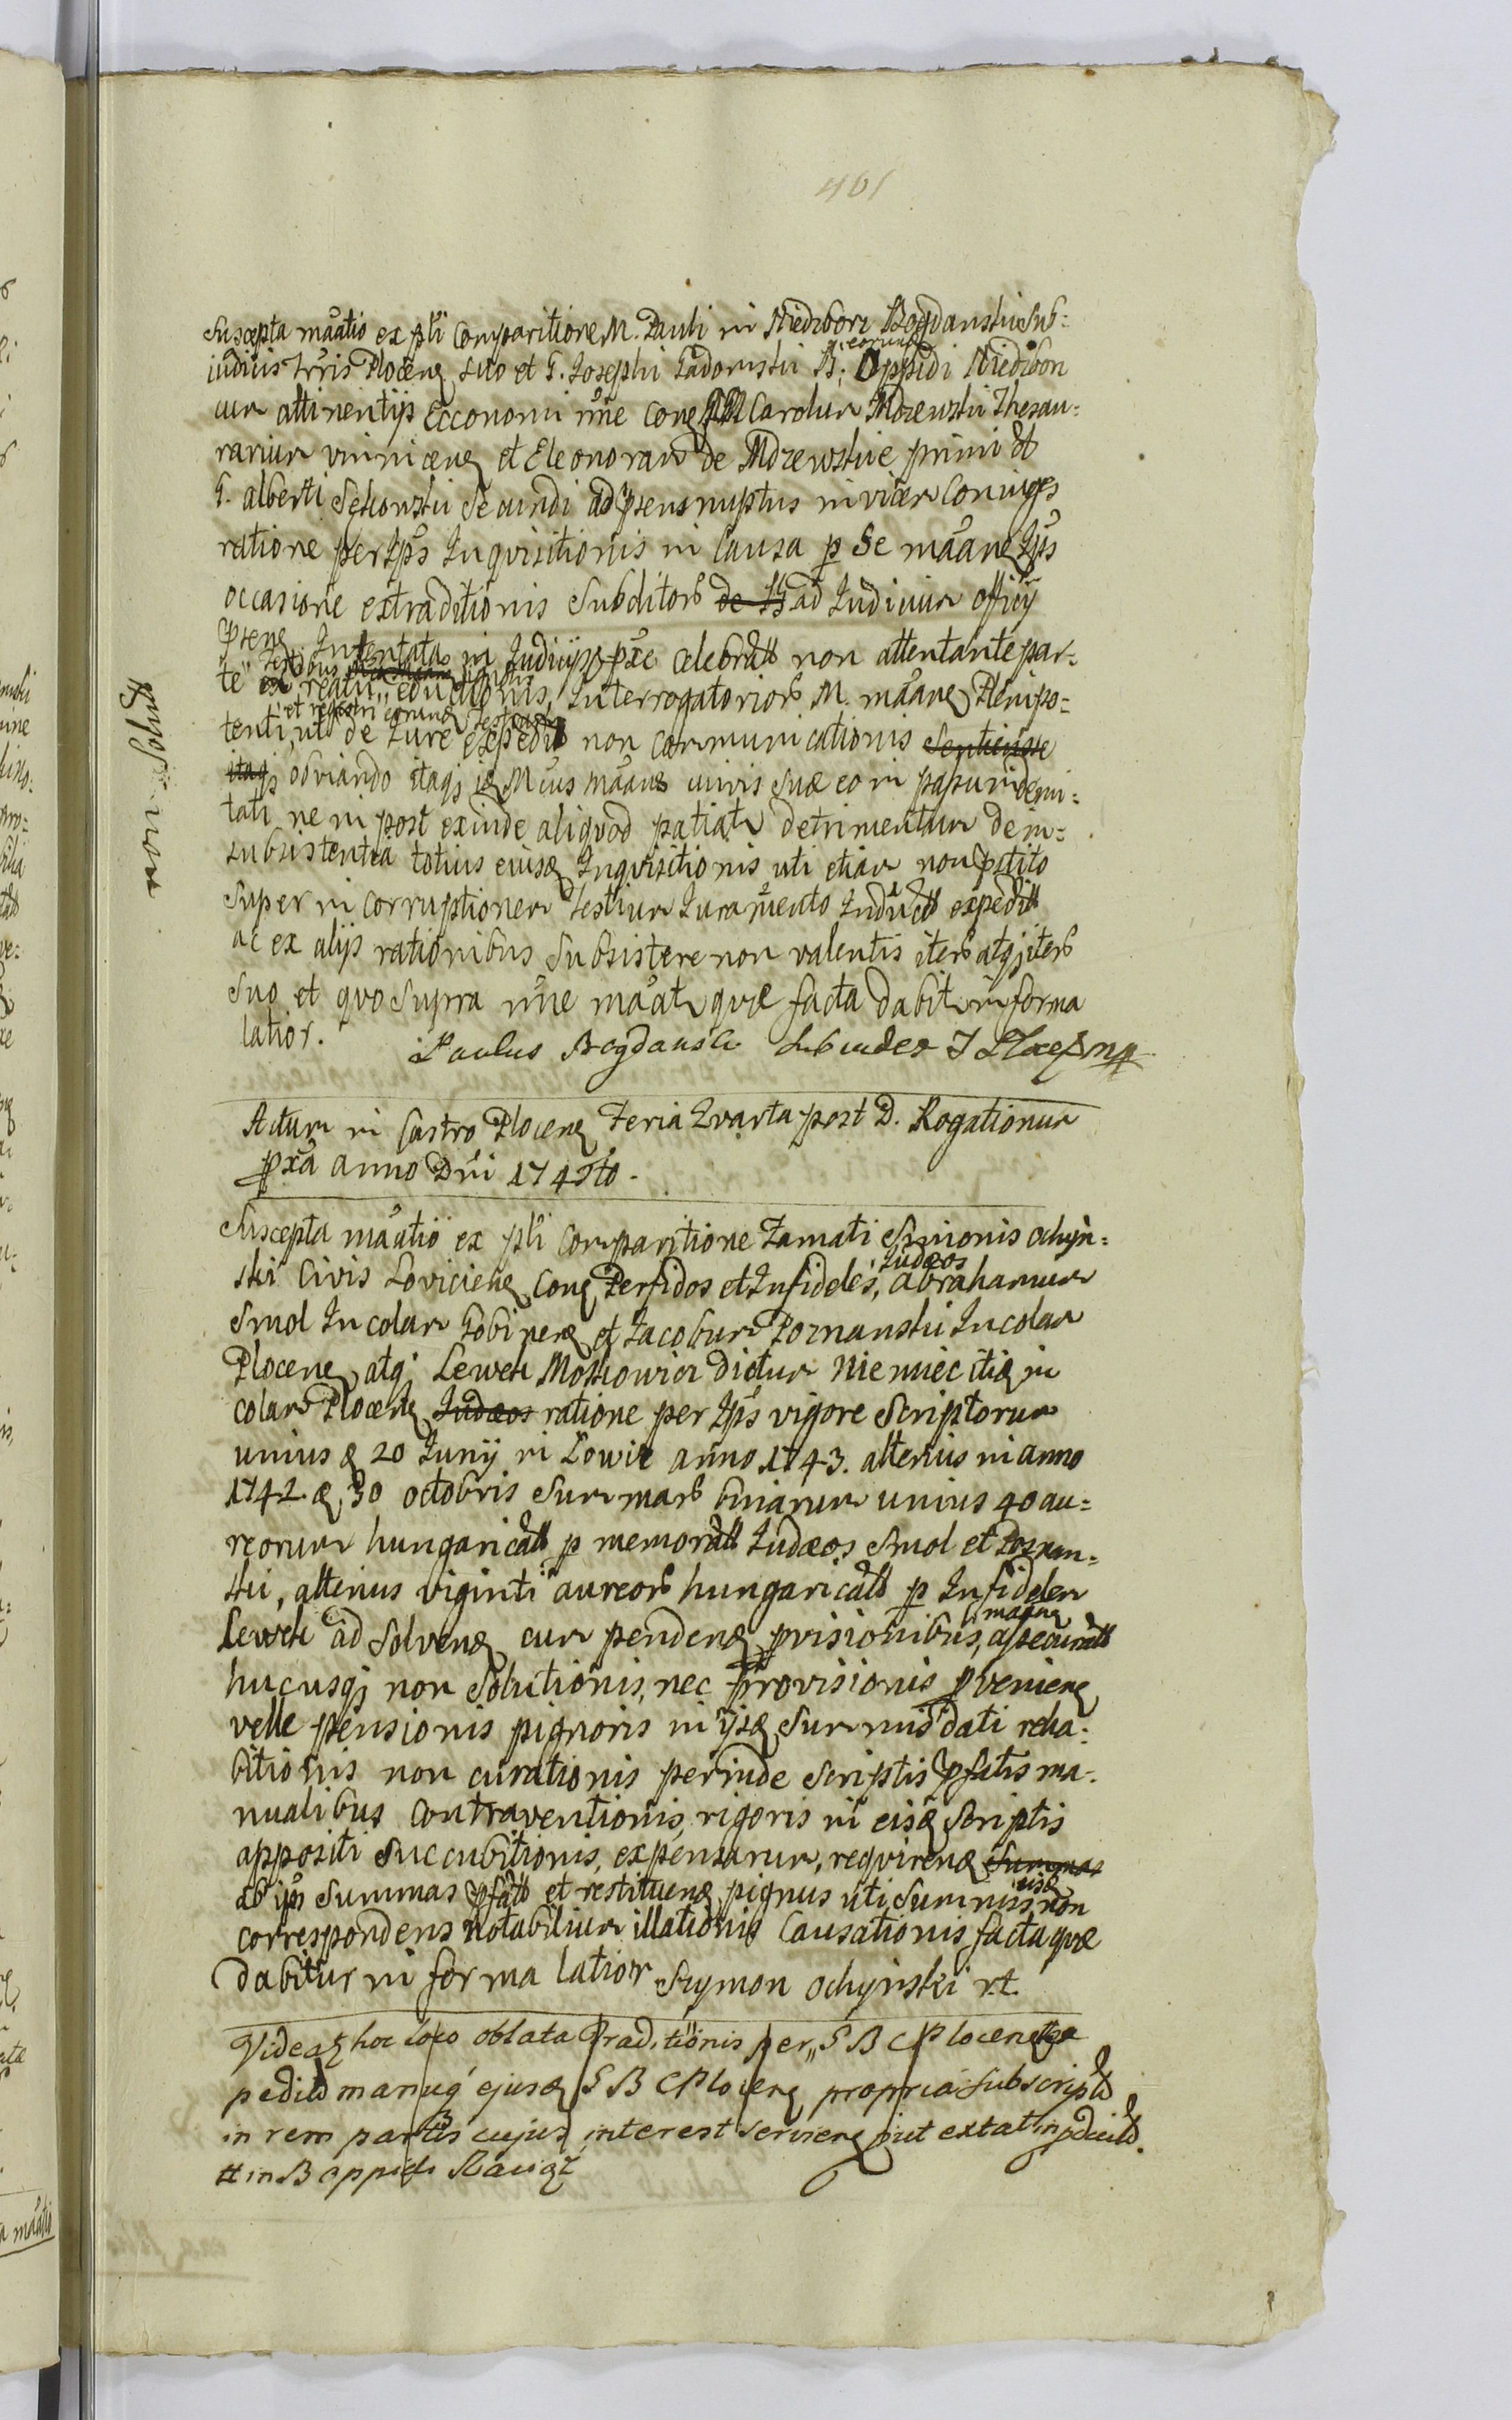 461
Suscepta mãatio ex pñti Comparitione M. Pauli in Niedrborz Bogdanski Sub=
iudicis Trris Plocens Suo et G. Josephi Gadomski B. Oppidi Niedrborz
cum attinentijs Ecconomi nñe Cons Carolum Mdzewski Thesau=
rarium vinnicens et Eleonoram de Mdzewskie primi et
G. alberti Sekowski Secundi ad psens nuptus in vicem Coniuges
ratione per Ips Inqvisitionis in Causa p Se mãans Ips
occasione extraditionis Subditorum de ad Iudicium officij
psens Intentata in Iudicijs pxe celebratt non attentante par=
te ex reatu eductionis, Interrogatoriorum M. mãans Plenipo=
et regestri eorund testium
tenti, uti de Iure expedit non communicationis Sentiensse
itaqз obviando itaqз id M eius mãans iuris suæ eo in passu indemni=
tati ne in post exinde aliqvod patiatr detrimentum de in=
subsistentia totius eiusd Inqvisitionis uti etiam non petito
Super in Corruptionem testium Iuramento Inductt expeditt
ac ex alijs rationibus Subsistere non valentis iterum atqз iterum
Suo et qvo Supra nñe mãatr qvæ facta dabitr in forma
latior.
Paulus Bogdanski Subiudex T Plocens mp
non Desuppt
Actum in Castro Plocens Feria Qvarta post D. Rogationum
pxã anno Dñi 1745to.
Suscepta mãatio ex pñti Comparitione Famati Simonis Ochijn=
ski Civis Loviciens Cons Perfidos et Infideles, Judæos abrahamum
Smol Incolam Gobinens et Jacobum Poznanski Incolam
Plocens, atqз Lewek Moskowicz dictum Niemiec itid in
colam Plocens Judæos ratione per Ips vigore Scriptorum
unius d 20 Junij in Lowicz anno 1743. alterius in anno
1742 d 30 octobris Summarum binarum unius 40 au=
reorum hungaricatt p memoratt Judæos Smol et Poznan=
ski, alterius viginti aureorum hungaricatt p Infidelem
Lewek ad Solvend cum pendens pvisionibus, mãans assecuratt
hucusqз non Solutionis, nec provisionis pveniens
velle pensionis pignoris in ijsd Summis dati reha=
bitionis non curationis perinde Scriptis pfatis ma=
nualibus Contraventionis, rigoris in eisd Scriptis
appositi Succubitionis, expensarum, reqvirend Summas
ab ips Summas pfatt et restituend pignus uti Summis eisd non
correspondens notabilium illationis Causationis facta qvæ
Dabitur in forma latior Szymon Ochyński rt.
Videatr hoc loco oblata Traditionis per S B C Plocens ex
pedit manuq ejusd S B C Plocens propria Subscript
in rem partis cujus interest Serviens put extat in
tt in B oppidi Raciąż